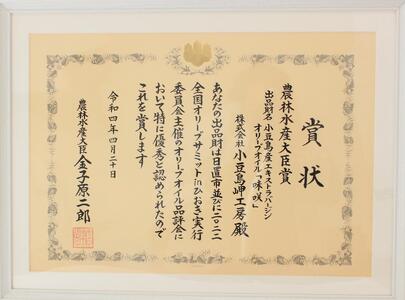 賞状
農林水産大臣賞
出品財名 小豆島産エキストラバージン
オリーブオイル「味・咲」
株式会社 小豆島岬工房 殿
あなたの出品財は日置市並びに二〇二二
全国オリーブサミットinひおき実行
委員会主催のオリーブオイル品評会に
おいて特に優秀と認められたので
これを賞します
令和四年四月二十日
農林水産大臣 金子原二郎